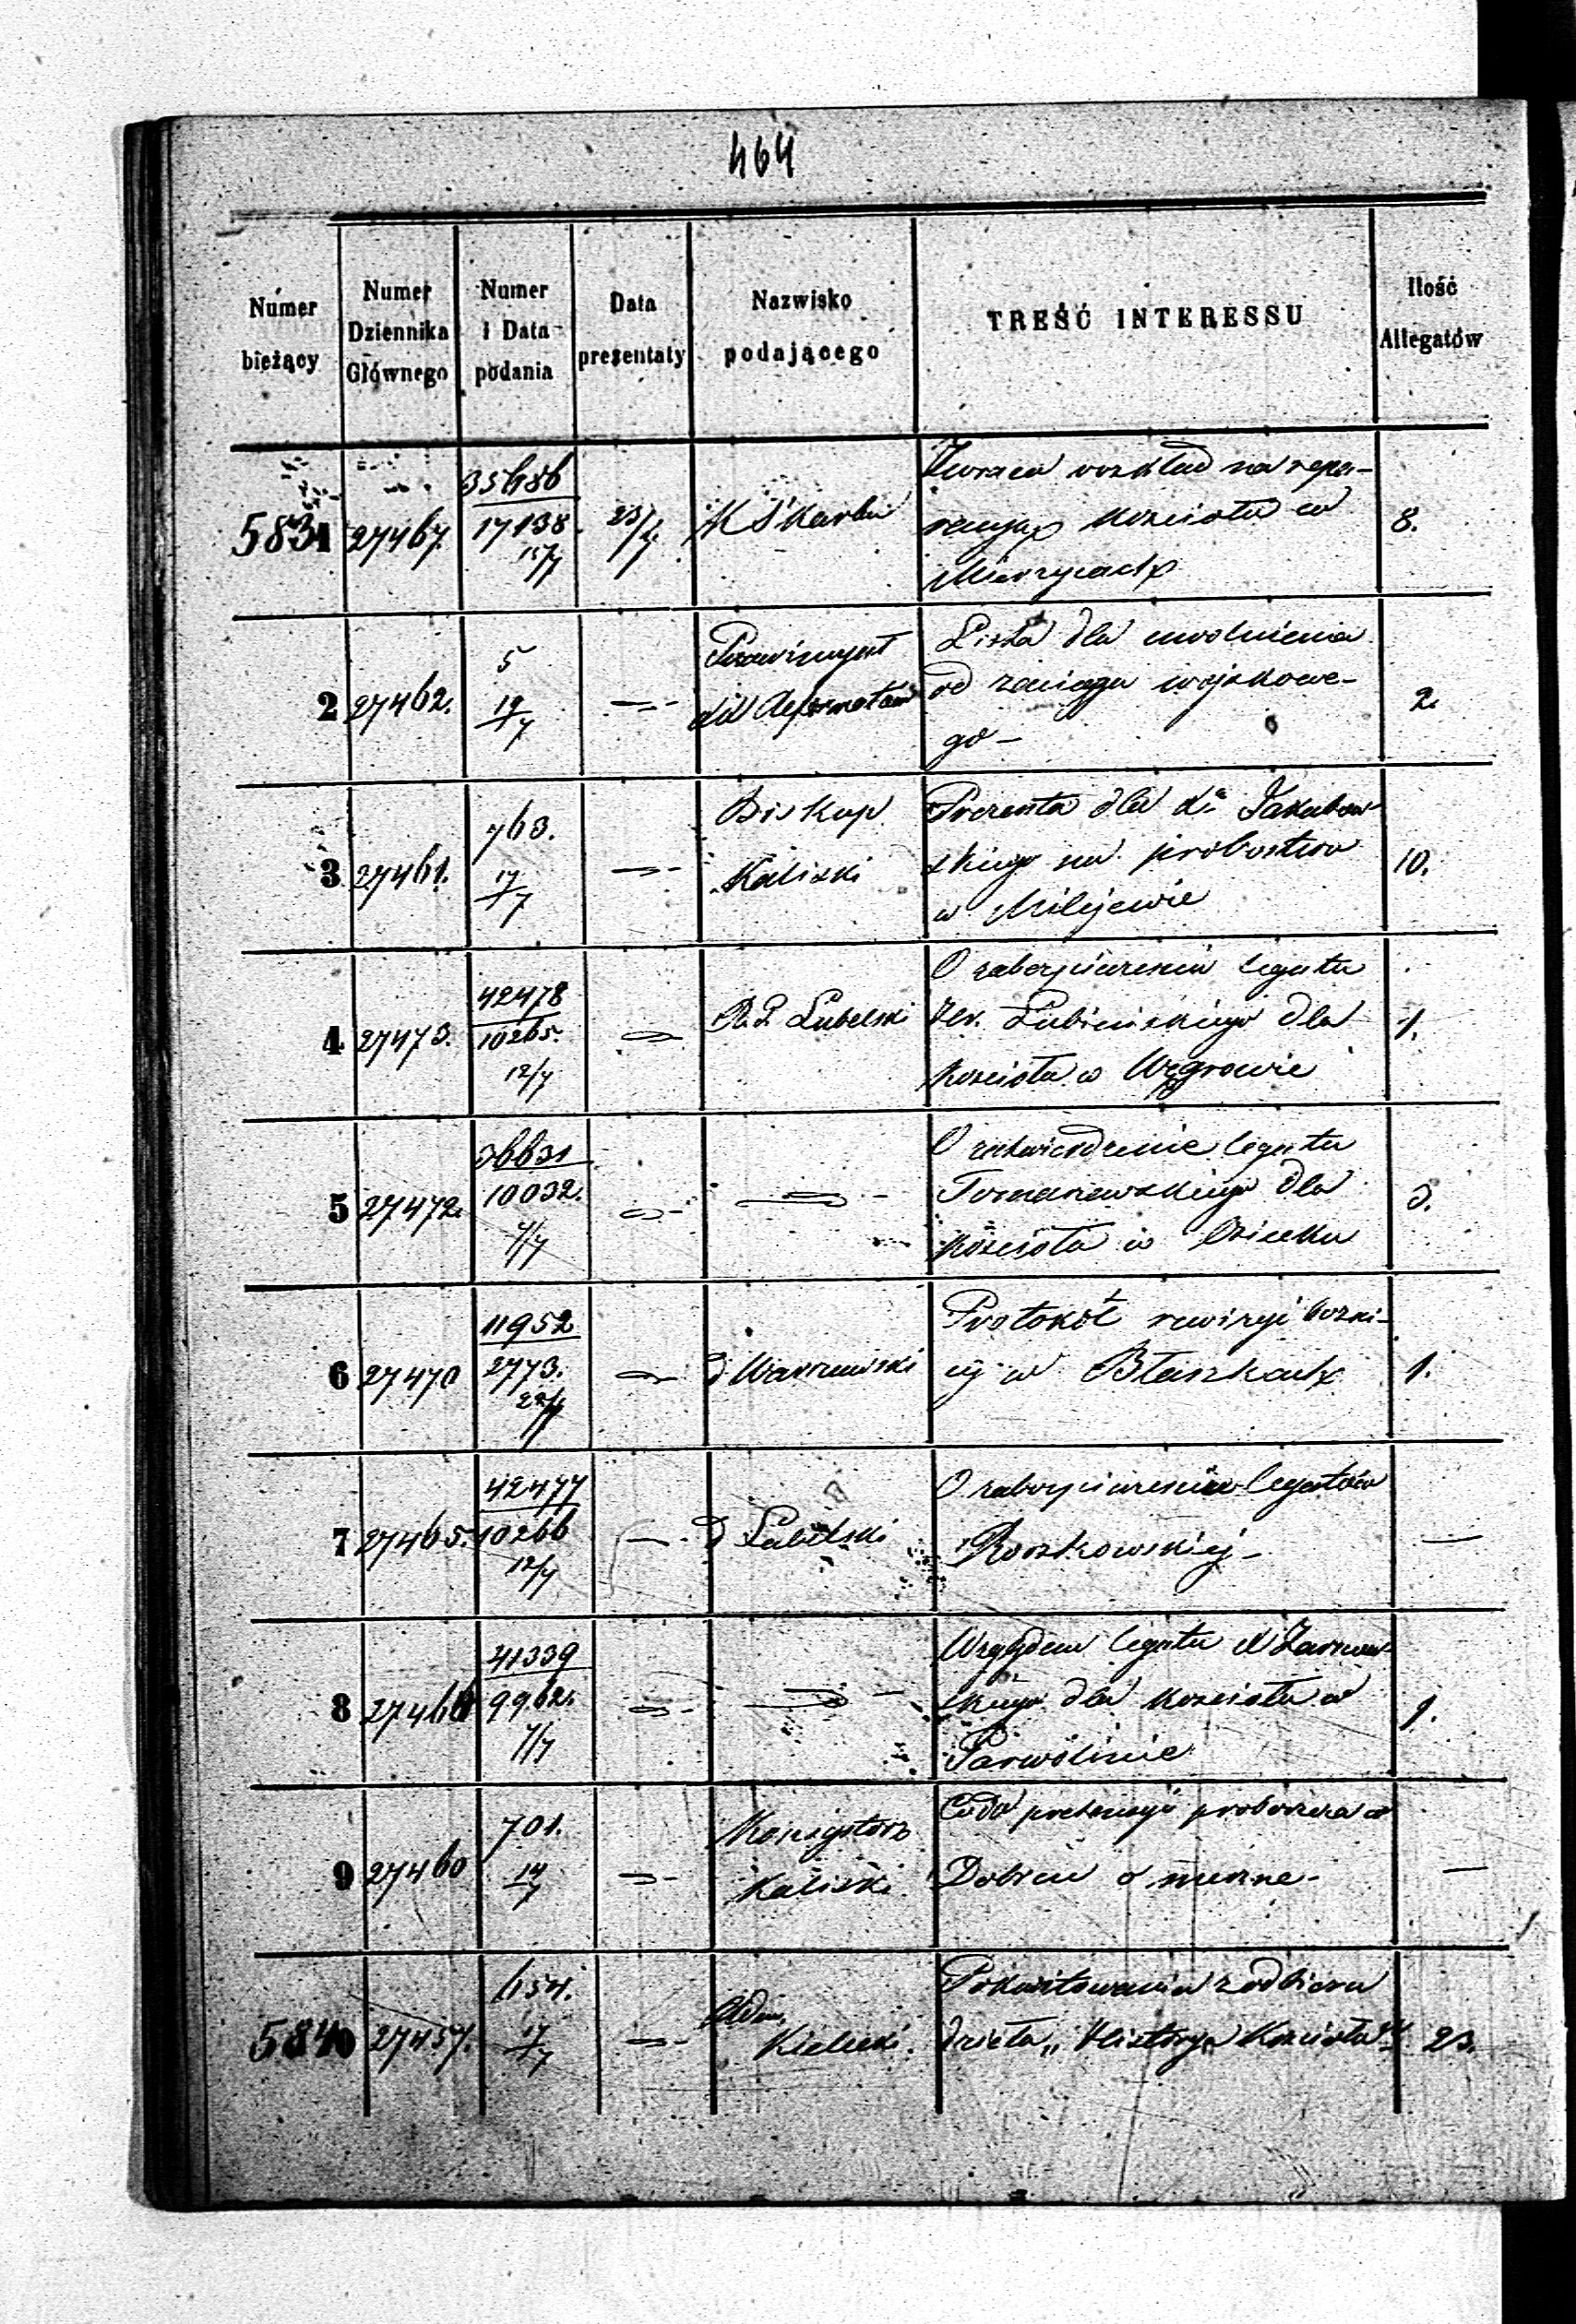 464
Numer bieżący
Numer Dziennika Głównego
Numer i Data podania
Data prezentaty
Nazwisko podającego
TREŚĆ INTERESSU
Ilość Allegatów
5831 27467. 35686 17138. 15/7 23/7 K Skarbu
Zwraca rozkład na repa-
racyą kościoła w
8.
2 27462. 5 19/7
Lista dla uwolnienia
od zaciągu wojskowe-
go –
2.
3 27461. 763. 17/7 Biskup
Kaliski
Prezenta dla Xa Jakubow-
skiego na probostwo
w Milejewie
10.
4 27473. 42478 10265. 12/7 R. G. Lubelski
O zabezpieczeniu legatu
Lubieńskiego dla
kościoła w Węgrowie
1.
5 27472. 36631 10032. 7/7
O zatwierdzenie legatu
Tomanowskiego dla
kościoła w Osiecku
3.
6 27470 11952 2773. 22/7 d Warszawski
Protokół rewizyi bożni-
cy w Błaszkach
1.
7 27465. 42477 10266 12/7 d Lubelski
O zabezpieczeniu legatów
Roszkowskiej –
—
8 41339 9962. 7/7
Względem legatu X
skiego dla kościoła w
Parwolinie
1.
9 27460 701. 14/7 Konsystorz
Kaliski
Co do pretensyi proboszcza w
—
5840 27457. 654. 17/7 Adm.
Kielecki.
Pokwitowania z odbioru
dzieła „Historya Kościoła"
23.